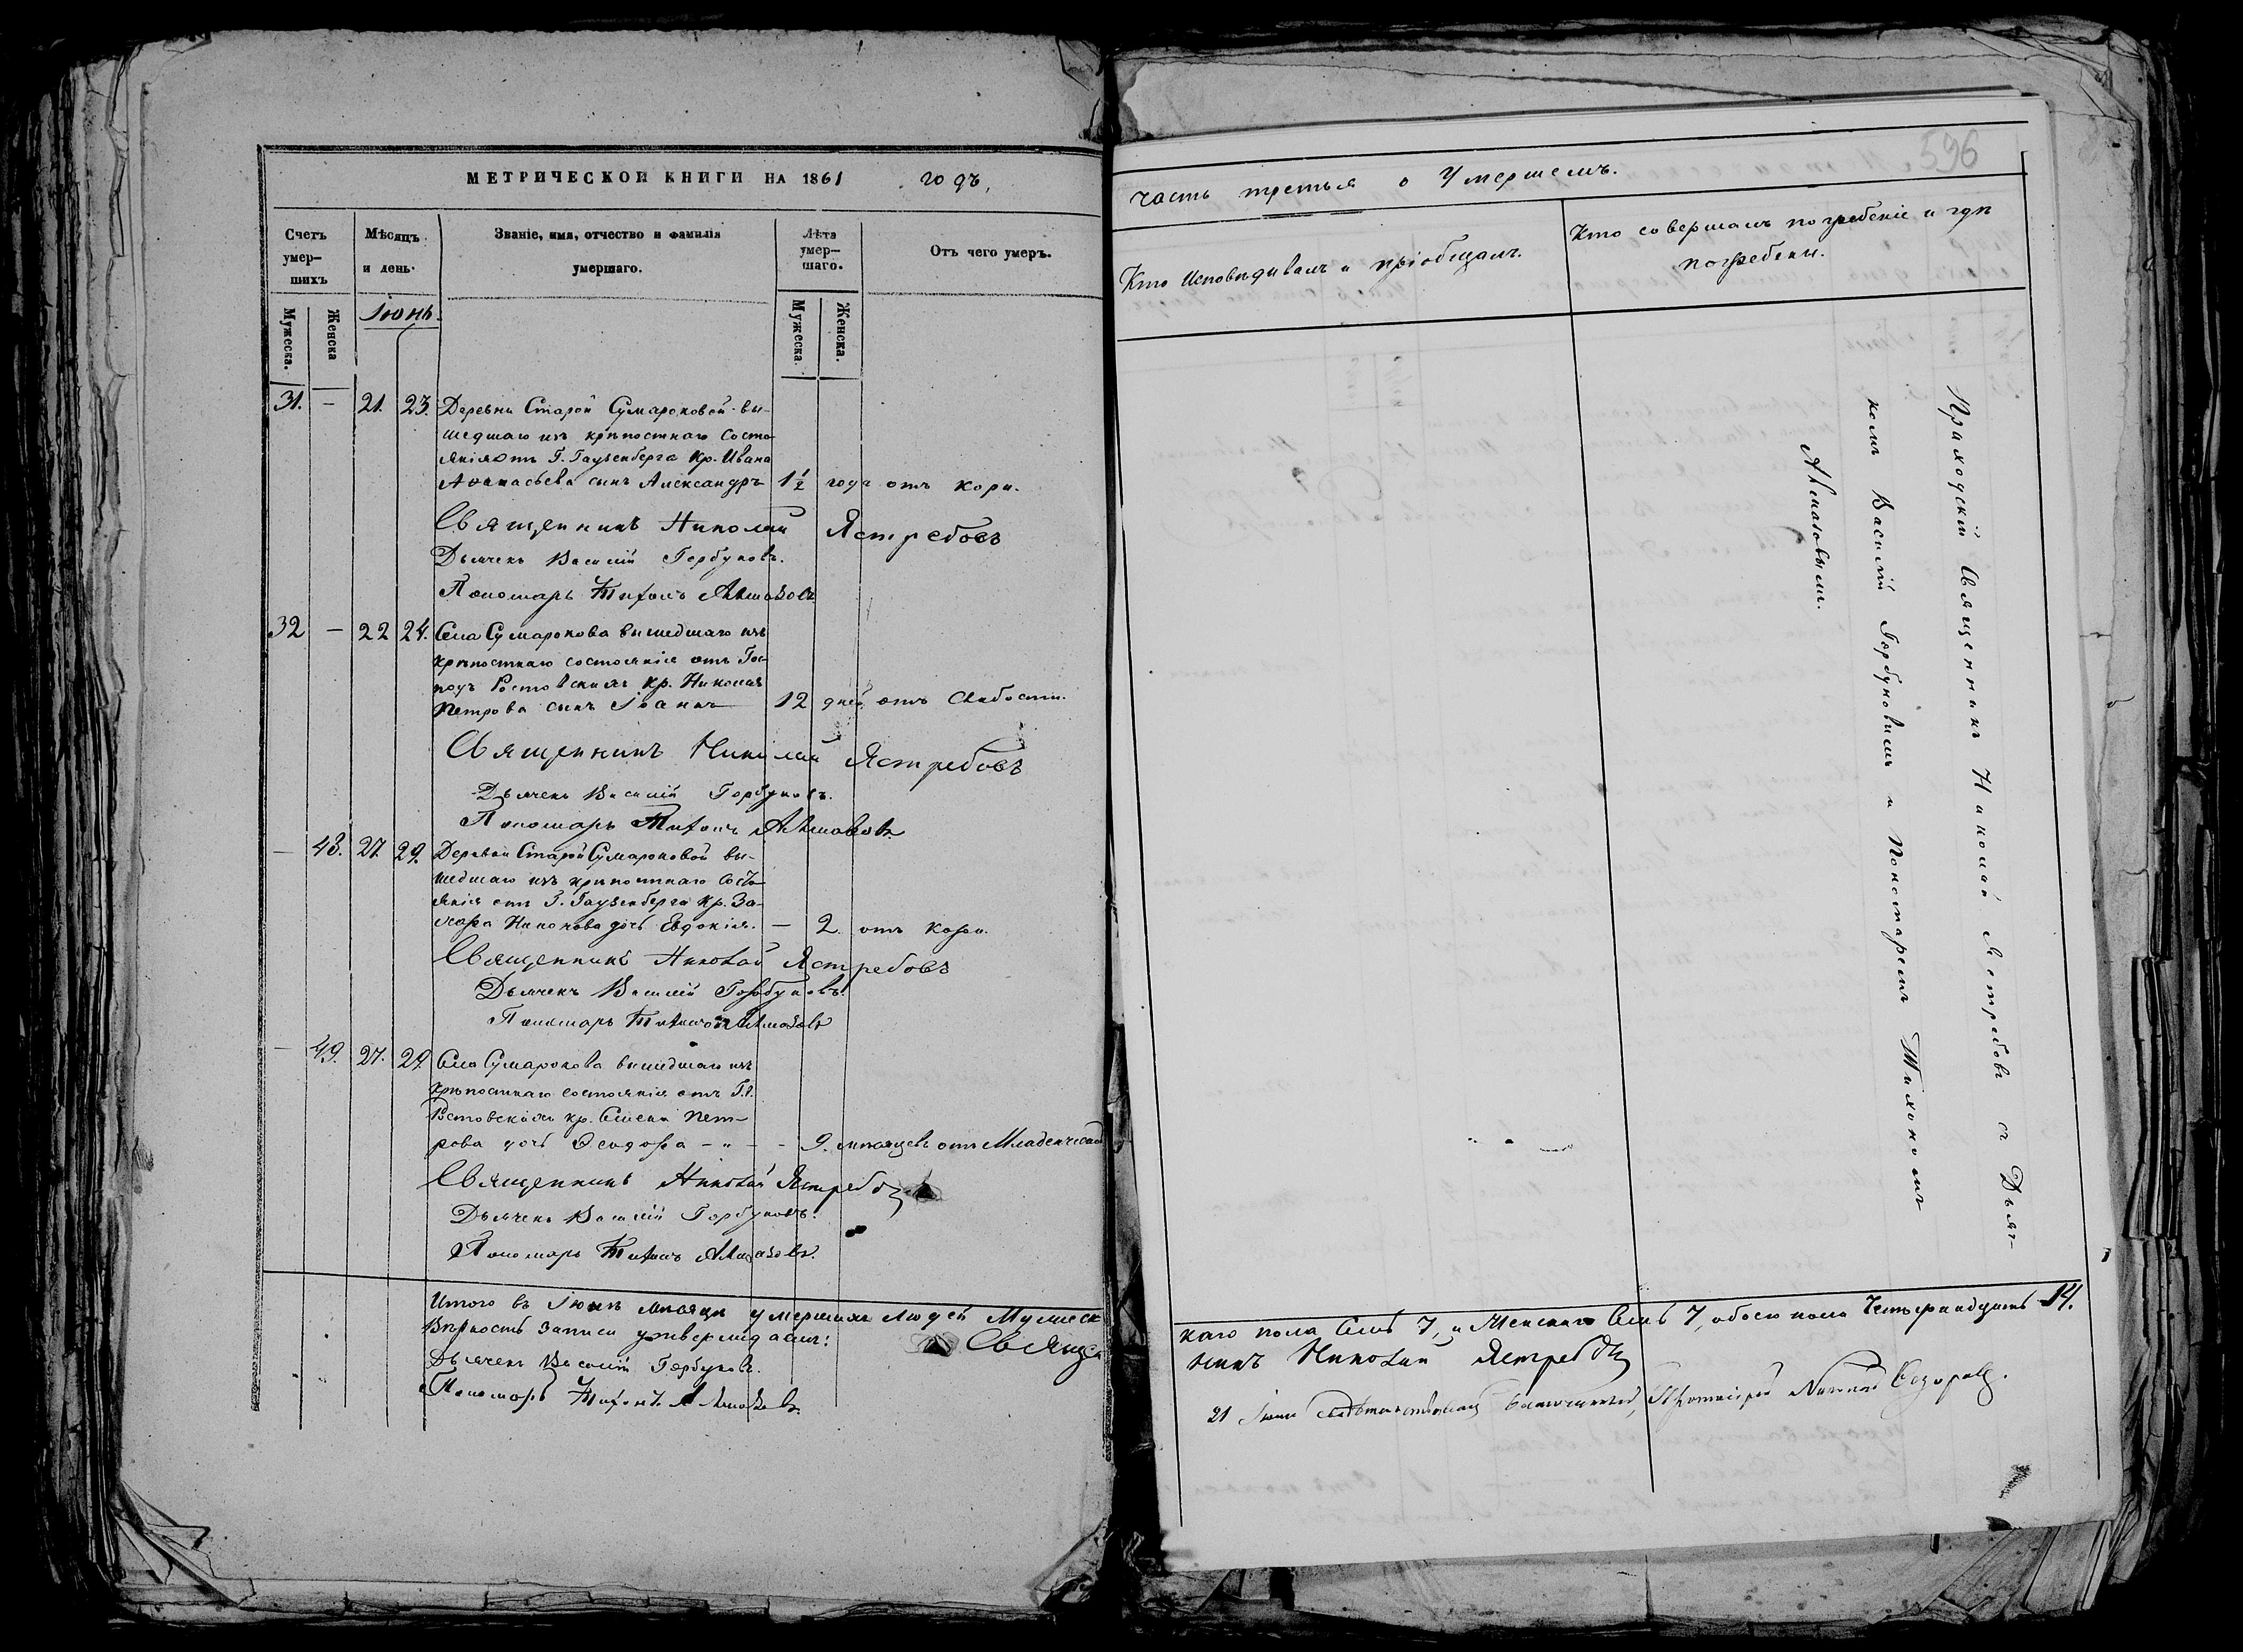 МЕТРИЧЕСКОЙ КНИГИ НА 1861 годъ,
Счетъ умер-шихъ
Мѣсяцъ и день.
Званіе, имя, отчество и фамилія умершаго.
Лѣта умер-шаго.
Отъ чего умеръ.
Мужеска.
Женска
Іюнь.
Мужеска.
Женска.
31. — 21. 23. Деревни Старой Сумароковой вы-
шедшаго изъ крѣпостнаго состо-
янія отъ Г. Гаузенберга Кр. Ивана
Аѳанасьева сынъ Александръ 1½ года отъ кори.
Священникъ Николай Ястребовъ
Дьячекъ Василій Горбуновъ.
Пономарь Тихонъ Алмазовъ
32 — 22 24. Села Сумарокова вышедшаго изъ
крѣпостнаго состоянія отъ Гос-
подъ Ростовскихъ кр. Николая
Петрова сынъ Іоаннъ 12 дней отъ слабости.
Священникъ Николай Ястребовъ
Дьячекъ Василій Горбуновъ.
Пономарь Тихонъ Алмазовъ.
— 48. 27. 29. Деревни Старой Сумароковой вы-
шедшаго изъ крѣпостнаго состо-
янія отъ Г. Гаузенберга Кр. За-
хара Никонова дочь Евдокія. — 2. отъ кори.
Священникъ Николай Ястребовъ
Дьячекъ Василій Горбуновъ.
Пономарь Тихонъ Алмазовъ
— 49. 27. 29. Села Сумарокова вышедшаго изъ
крѣпостнаго состоянія отъ Г.г.
Ростовскихъ кр. Пет-
рова дочь Ѳеодора — " — - 9. мѣсяцевъ отъ
Священникъ Николай Ястребовъ
Дьячекъ Василій Горбуновъ.
Пономарь Тихонъ Алмазовъ.
Итого въ Іюнѣ мѣсяцѣ умершихъ людей Мужеск
Вѣрность записи утверждаемъ: Священ
Дьячекъ Василій Горбуновъ.
Пономарь Тихонъ Алмазовъ.
596
часть третья о Умершемъ.
Кто исповѣдывалъ и пріобщалъ.
Кто совершалъ погребеніе и гдѣ
погребены.
Приходскій Священникъ Николай Ястребовъ съ Дьяч-
комъ Василій Горбуновымъ и Пономаремъ Тихономъ
Алмазовымъ.
каго пола семь 7, и Женскаго семь 7, обоего пола Четырнадцать 14.
никъ Николай Ястребовъ
21